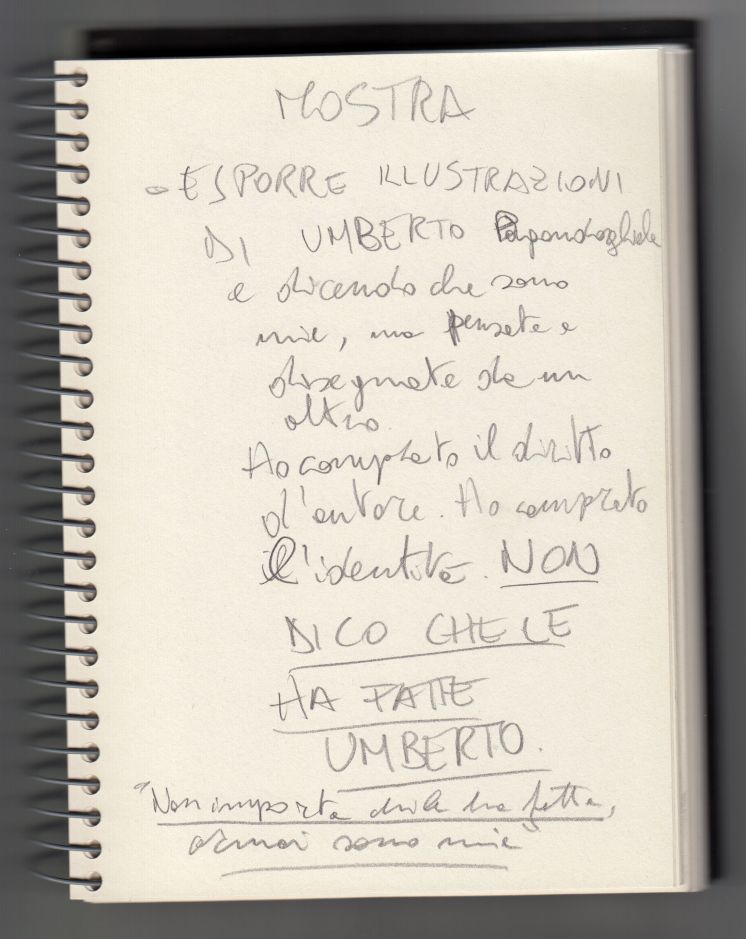 MOSTRA
- ESPORRE ILLUSTRAZIONI
DI UMBERTO pagandogliele
e dicendo che sono
mie, ma pensate e
disegnate da un
altro.
Ho comprato il diritto
d'autore. Ho comprato
l'identità. NON
DICO CHE LE
HA FATTE
UMBERTO.
"Non importa chi le ha fatte,
ormai sono mie"